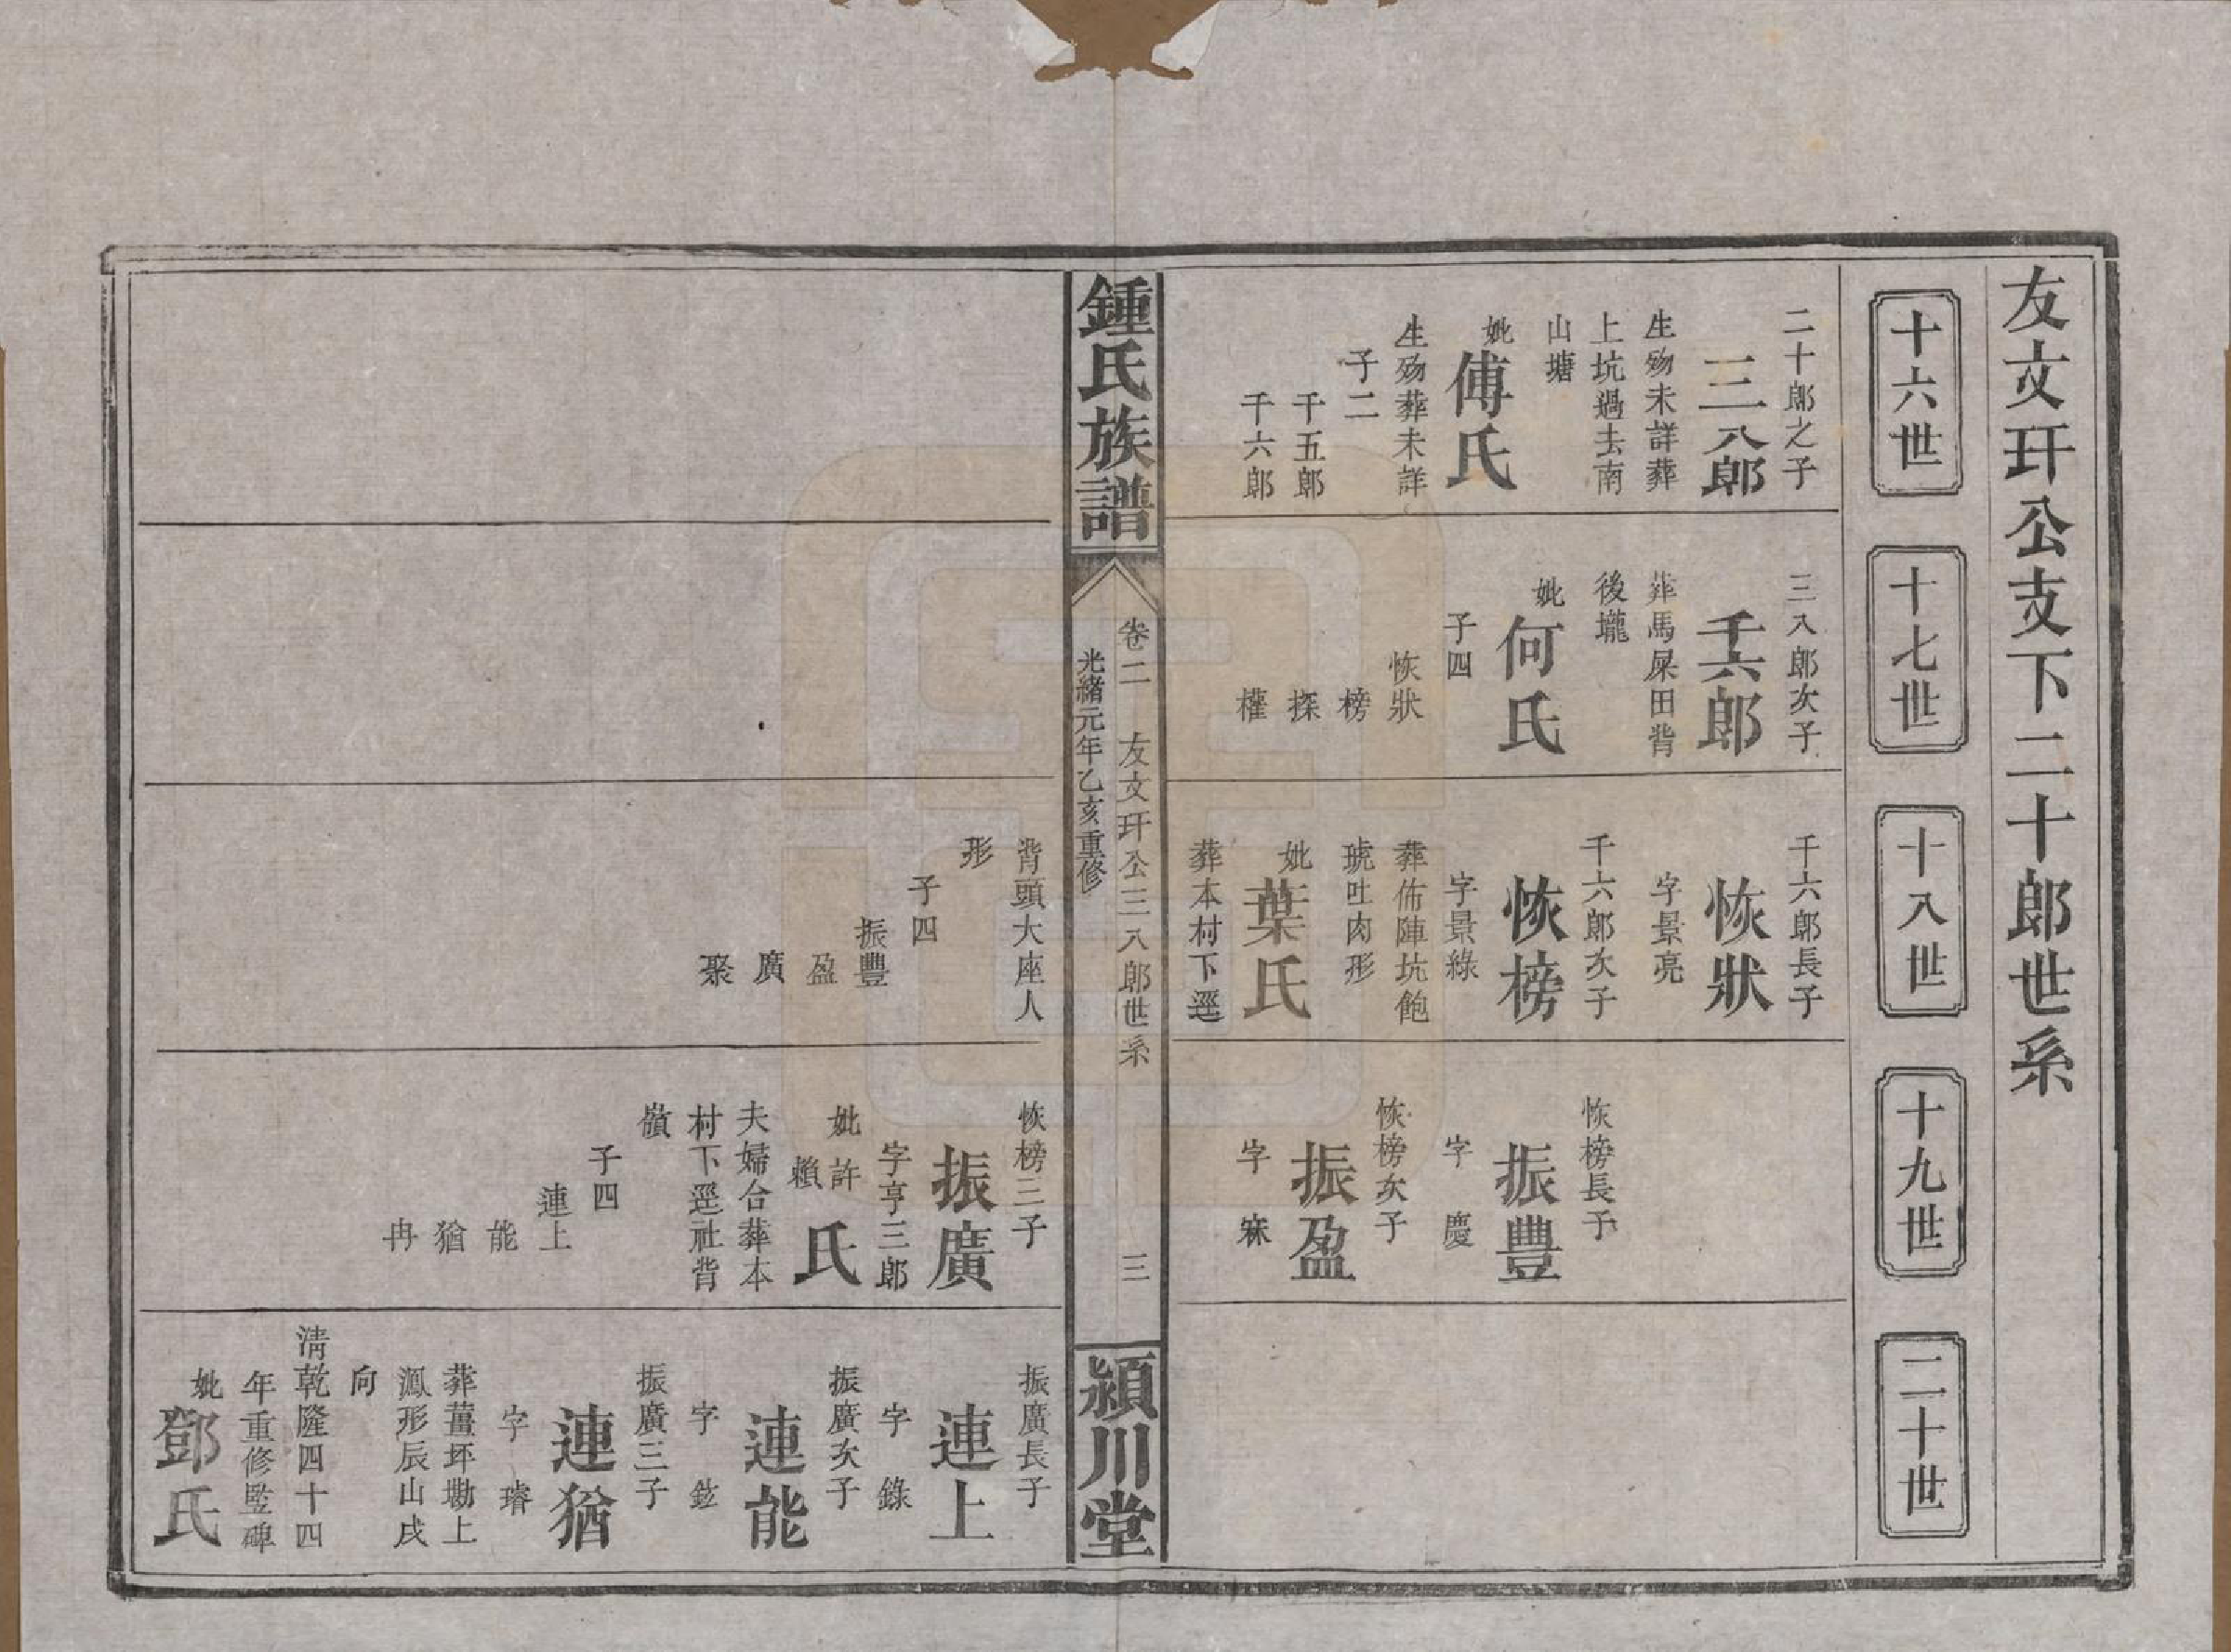 友文玕公支下二十郎世系
十六世
十七世
十八世
十九世
二十世
二十郎之子
三八郎
生歾未詳葬
上坑過去南
山塘
妣傅氏
生歾葬未詳
子二
千五郎
千六郎
三八郎次子
千六郎
葬馬屎田背
後壠
妣何氏
子四
恢狀
榜
探
權
千六郎長子
恢狀
字景亮
千六郎次子
恢榜
字景綠
葬佈陣坑飽
琥吐肉形
妣葉氏
葬本村下逕
恢榜長子
振豐
字慶
恢榜次子
振盈
字寐
鍾氏族譜
卷二 友文玕公三八郎世系 三
光緒元年乙亥重修
潁川堂
背頭大座人
形
子四
振豐
盈
廣
聚
恢榜三子
振廣
字亨三郎
妣許賴氏
夫婦合葬本
村下逕社背
嶺
子四
連上
能
猶
冉
振廣長子
連上
字錄
振廣次子
連能
字鉉
振廣三子
連猶
字璿
葬薑坪墈上
鳳形辰山戌
向
淸乾隆四十四
年重修豎碑
妣鄧氏